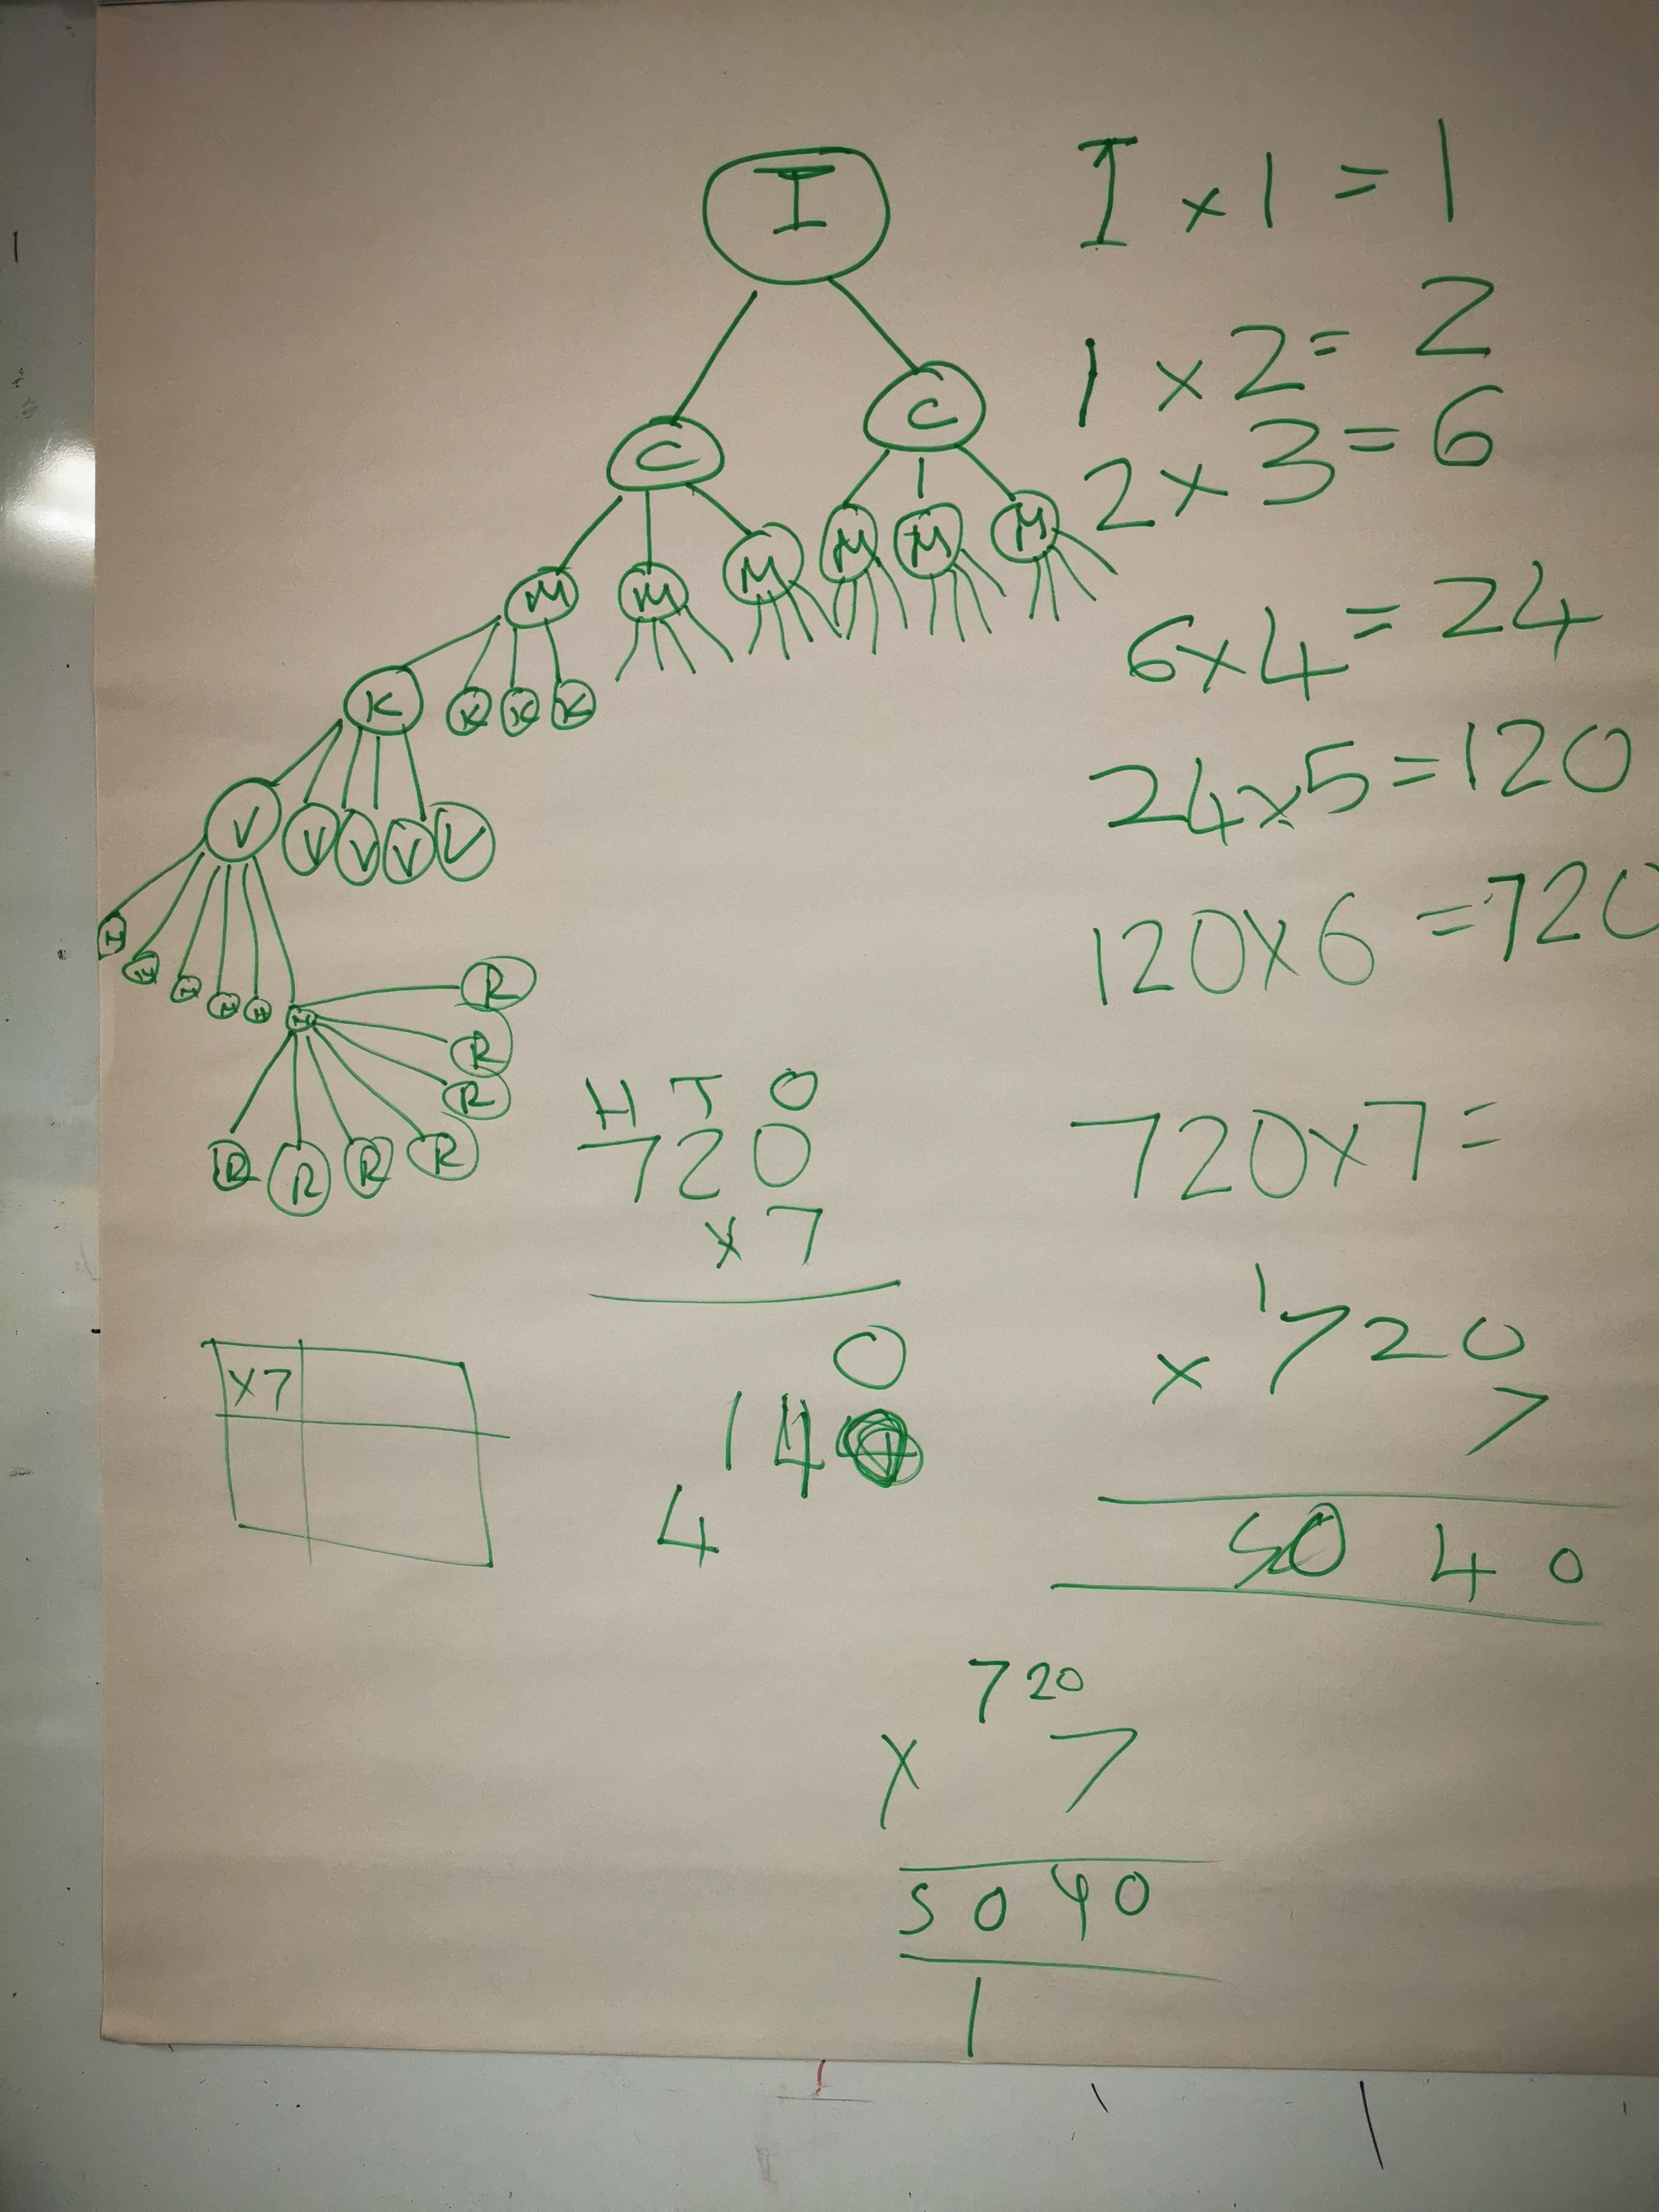 I
C C
M M M M M M
K K K K
V V V V V
R
R
R
R R R R
I x 1 = 1
1 x 2 = 2
2 x 3 = 6
6 x 4 = 24
24 x 5 = 120
120 x 6 = 720
720 x 7 =
H T O
720
x 7
0
14
4
x7
1
720
x 7
5040
720
x 7
5040
1